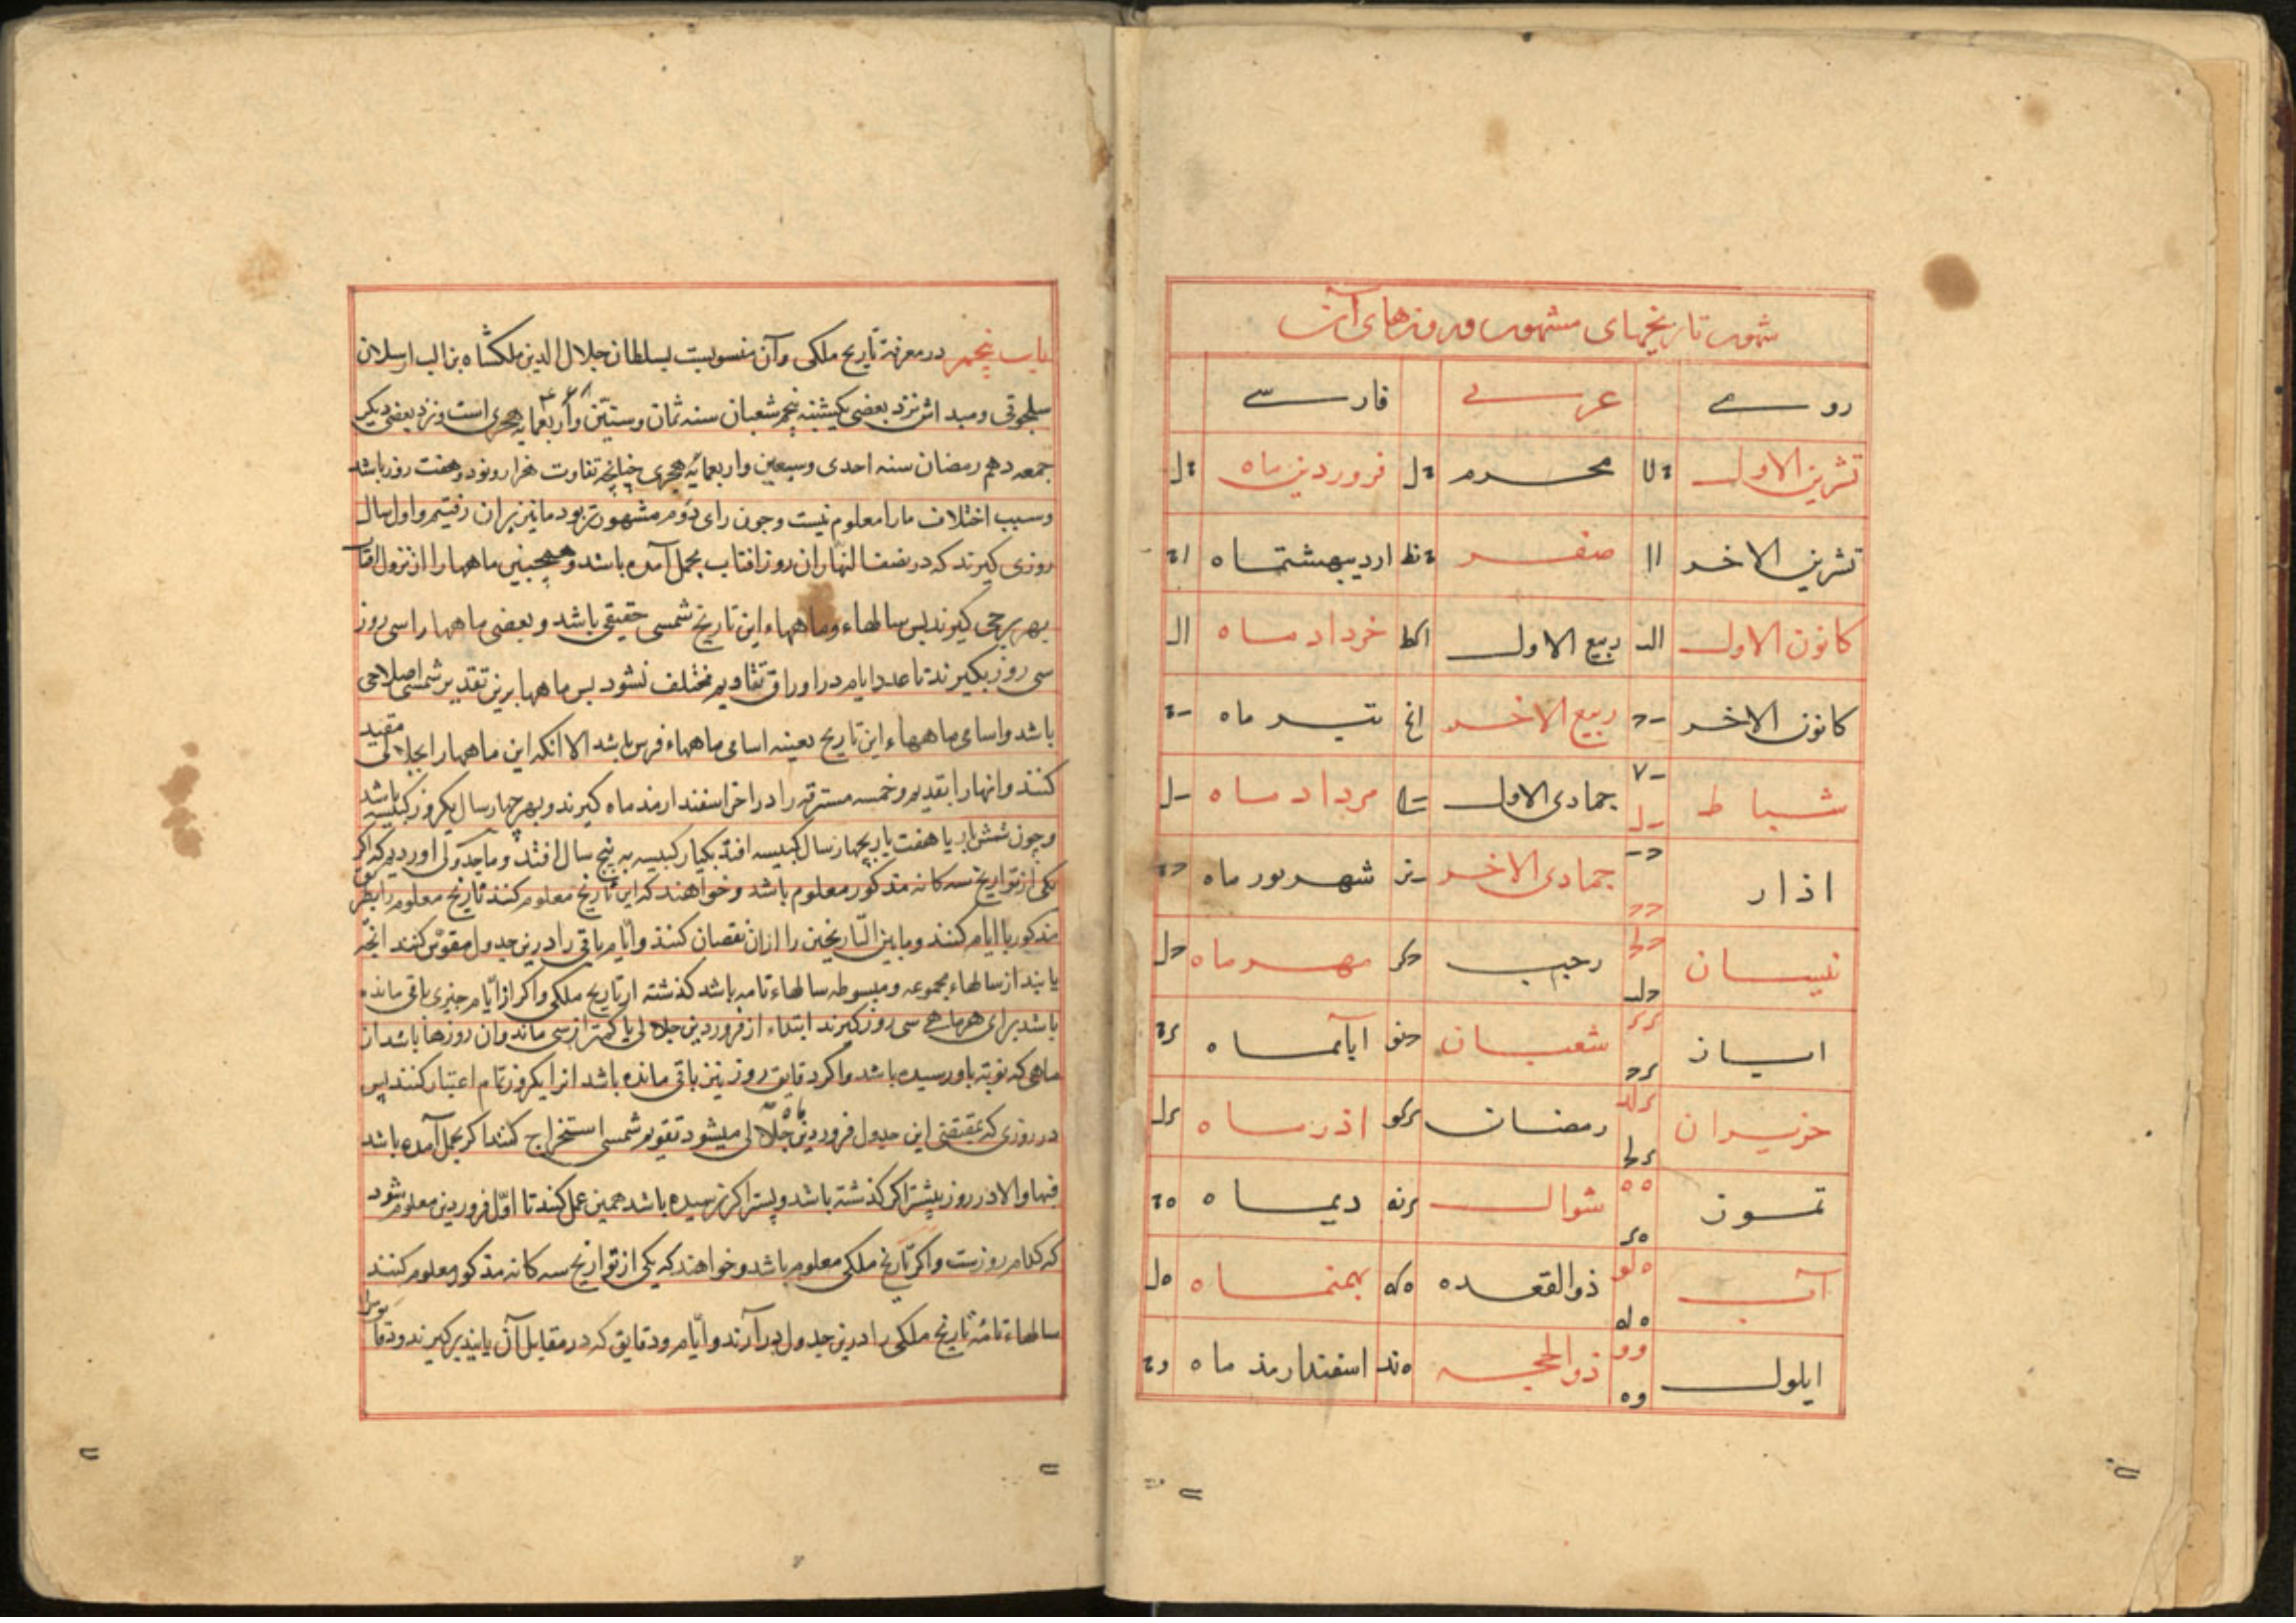 شهور تاریخهای مشهور و روزهای آن
رومے عربے فارسے
تشرین الاول ةلا محرم ةل فروردین ماه ةل
تشرین الاخر اا صفر ةنط اردیبهشتماه اة
کانون الاول الـ ربیع الاول اکط خرداد ماه الـ
کانون الاخر ربیع الاخر انح تیر ماه
شباط جمادی الاول مرداد ماه
اذار جمادی الاخر شهریور ماه
نیسان رجب مهر ماه حل
ایار شعبان حنو ابآنماه
حزیران رمضان اذر ماه
تموز شوال دیماه
آب ذوالقعده بهمنماه هل
ایلول ذوالحجه هند اسفندارمذ ماه وة
باب پنجم در معرفة تاریخ ملکی وآن منسوبست بسلطان جلال الدین ملکشاه بن الب ارسلان
سلجوقی ومبداش نزد بعضی یکشنبه پنجم شعبان سنه ثمان وستین وأربعمایه هجری است ونزد بعضی دیکر
جمعه دهم رمضان سنه احدی وسبعین واربعمائه هجری چنانچه تفاوت هزار ونود وهفت روز باشد
وسبب اختلاف ما را معلوم نیست وچون رای دوم مشهورتر بود ما نیز بران رفتیم واول سال
روزی کیرند که در نصف النهار ان روز افتاب بحمل آمده باشد وهمچنین ماهها را از نزول افتاب
بهر برجی کیرند بس سالهاء وماههاء این تاریخ شمسی حقیقی باشد وبعضی ماهها را سی روز
سی روز بکیرند تا عدد ایام در اوراق تقاویم مختلف نشود بس ماهها برین تقدیر شمسی اصلاحی
باشد واسامی ماههاء این تاریخ بعینه اسامی ماههاء فرس باشد الا انکه این ماهها را بجلالی مقید
کنند وانها را بقدیم وخمسه مسترقه را در اخر اسفندارمذ ماه کیرند وبهر چهار سال یکروز کبیسه باشد
وچون شش بار یا هفت بار بچهار سال کبیسه افتد یکبار کبیسه به پنج سال افتد وما جدولی اوردیم که اکر
یکی از تواریخ سه کانه مذکور معلوم باشد وخواهند که این تاریخ معلوم کنند تاریخ معلوم را بطریق
مذکور با ایام کنند وما بین التاریخین را ازان نقصان کنند وایام باقی را درین جدول مقوس کنند انچه
یابند از سالهاء مجموعه ومبسوطه سالهاء تامه باشد کذشته از تاریخ ملکی واکر از ایام چیزی باقی مانده
باشد برای هر ماهے سی روز کیرند ابتداء از فروردین جلالی یا کمتر از سی ماند وان روزها باشد از
ماهی که نوبت باو رسیده باشد واکر دقایق روز نیز باقی مانده باشد انرا یکروز تمام اعتبار کنند پس
در روزی که بمقتضی این جدول فروردین ماه جلالی میشود تقویم شمسی استخراج کنند اکر بحمل آمده باشد
فبها والا در روز پیشتر اکر کذشته باشد وپستر اکر نرسیده باشد همین عمل کنند تا اول فروردین معلوم شود
که کدام روزست واکر تاریخ ملکی معلوم باشد وخواهند که یکی از تواریخ سه کانه مذکور معلوم کنند
سالهاء تامه تاریخ ملکی را درین جدول درآرند وایام ودقایق که در مقابل آن یابند برکیرند